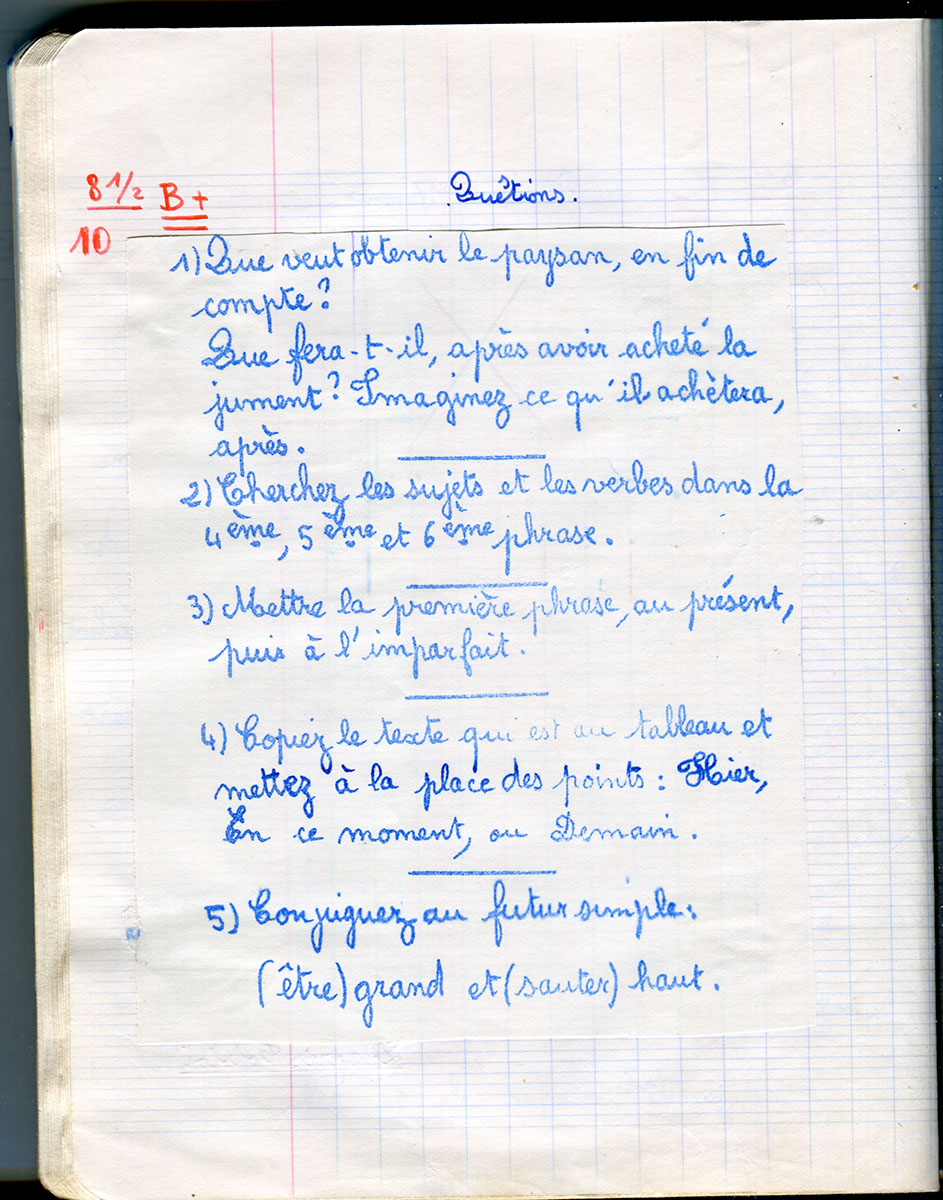 8 1/2 B+
10
Quêtions.
1) Que veut obtenir le paysan, en fin de
compte?
Que fera-t-il, après avoir acheté la
jument? Imaginez ce qu'il achètera,
après.
2) Cherchez les sujets et les verbes dans la
4ème, 5ème et 6ème phrase.
3) Mettre la première phrase, au présent,
puis à l'imparfait.
4) Copiez le texte qui est au tableau et
mettez à la place des points : Hier,
En ce moment, ou Demain.
5) Conjuguez au futur simple:
(être) grand et (sauter) haut.